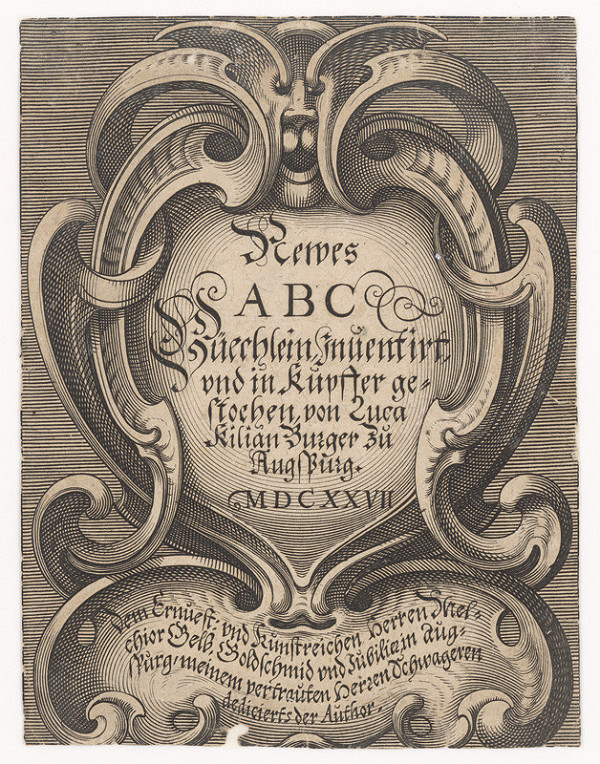 Newes
ABC
Büechlein Inuentirt
vnd in Kupffer ge-
stochen, von Luca
Kilian Burger zu
Augspurg.
MDCXXVII
Dem Ernuest. vnd Kunstreichen Herren Mel-
chior Gelb, Goldschmid vnd Jubilia in Aug-
spurg, meinem vertrauten Herren Schwageren
dedicierts der Author.